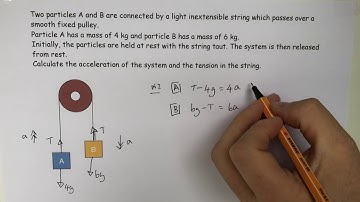 Two particles A and B are connected by a light inextensible string which passes over a
smooth fixed pulley.
Particle A has a mass of 4 kg and particle B has a mass of 6 kg.
Initially, the particles are held at rest with the string taut. The system is then released
from rest.
Calculate the acceleration of the system and the tension in the string.
N2 A T-4g = 4a
B 6g-T = 6a
a T T a
A B
4g 6g